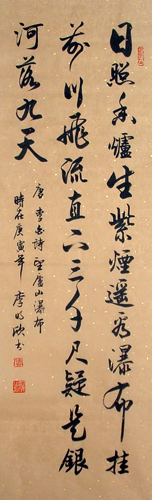 日照香爐生紫煙遙看瀑布挂
前川飛流直下三千尺疑是銀
河落九天
唐李白詩望廬山瀑布
時在庚寅年 李